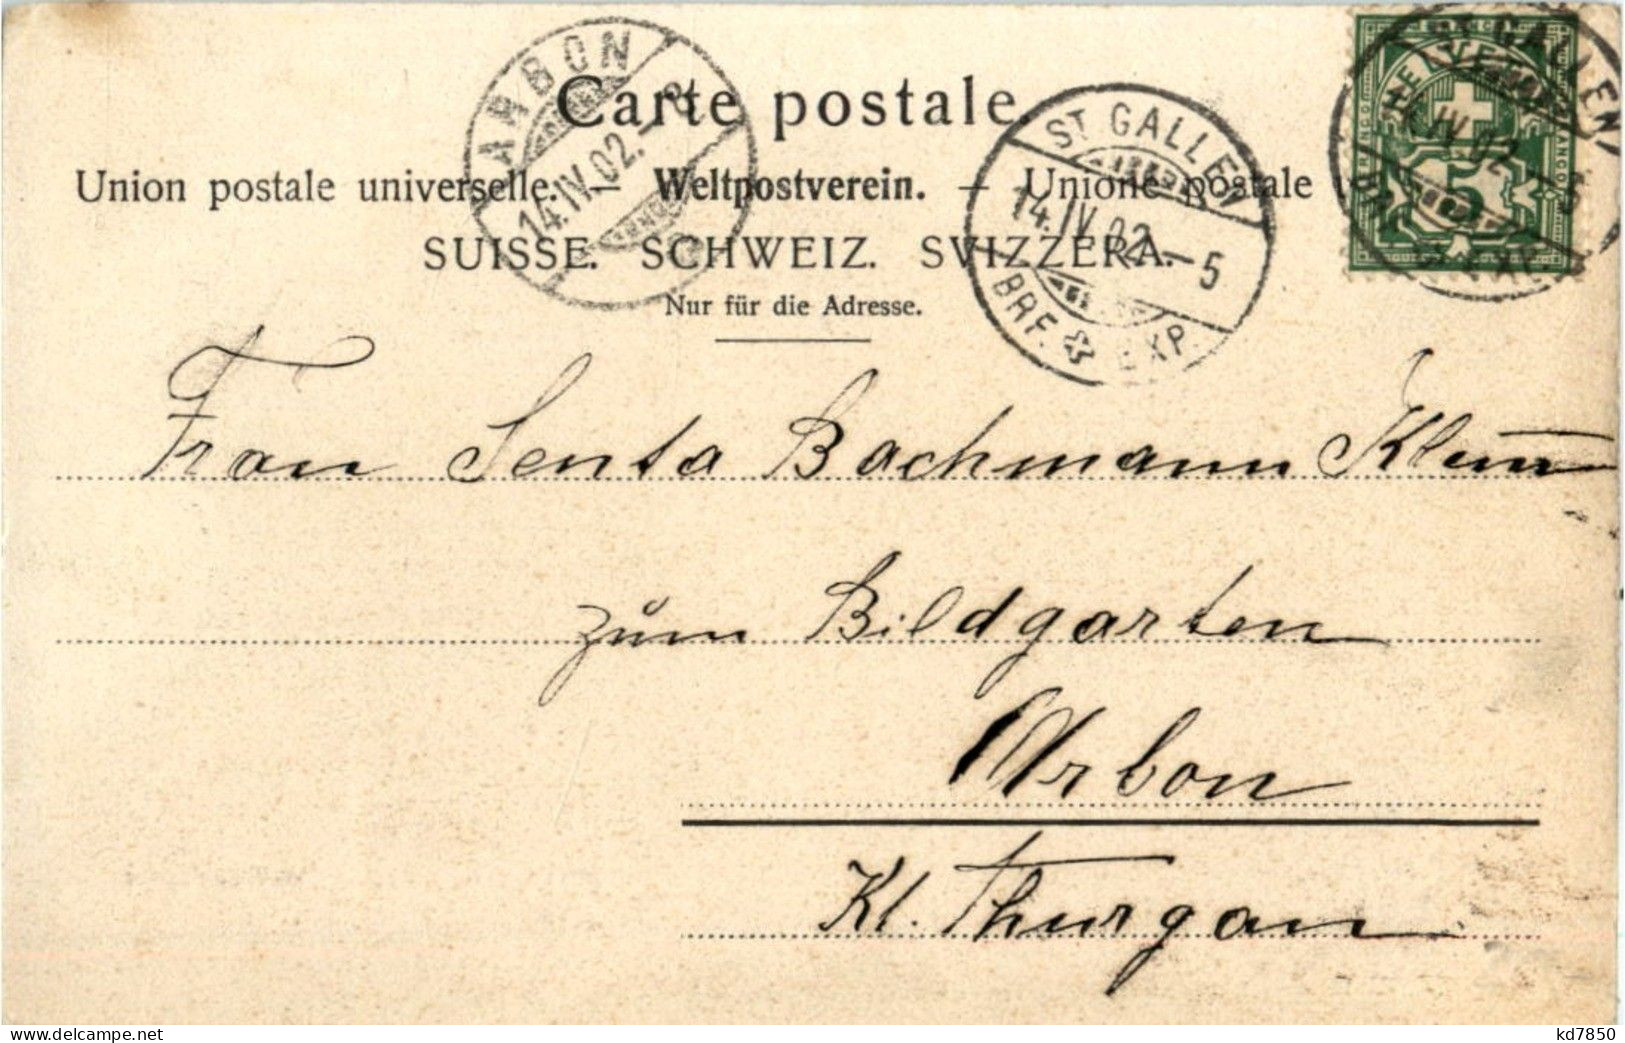 Carte postale.
Union postale universelle. — Weltpostverein. — Unione postale
SUISSE. SCHWEIZ. SVIZZERA.
Nur für die Adresse.
ARBON
14.IV.02.-8
ST. GALLEN
14.IV.02.-5
BRF. EXP.
ST. GALLEN
14.IV.02.-5
FRANCO
HELVETIA
5
Frau Senta Bachmann Klum
zum Bildgarten
Arbon
Kt. Thurgau
www.delcampe.net
kd7850